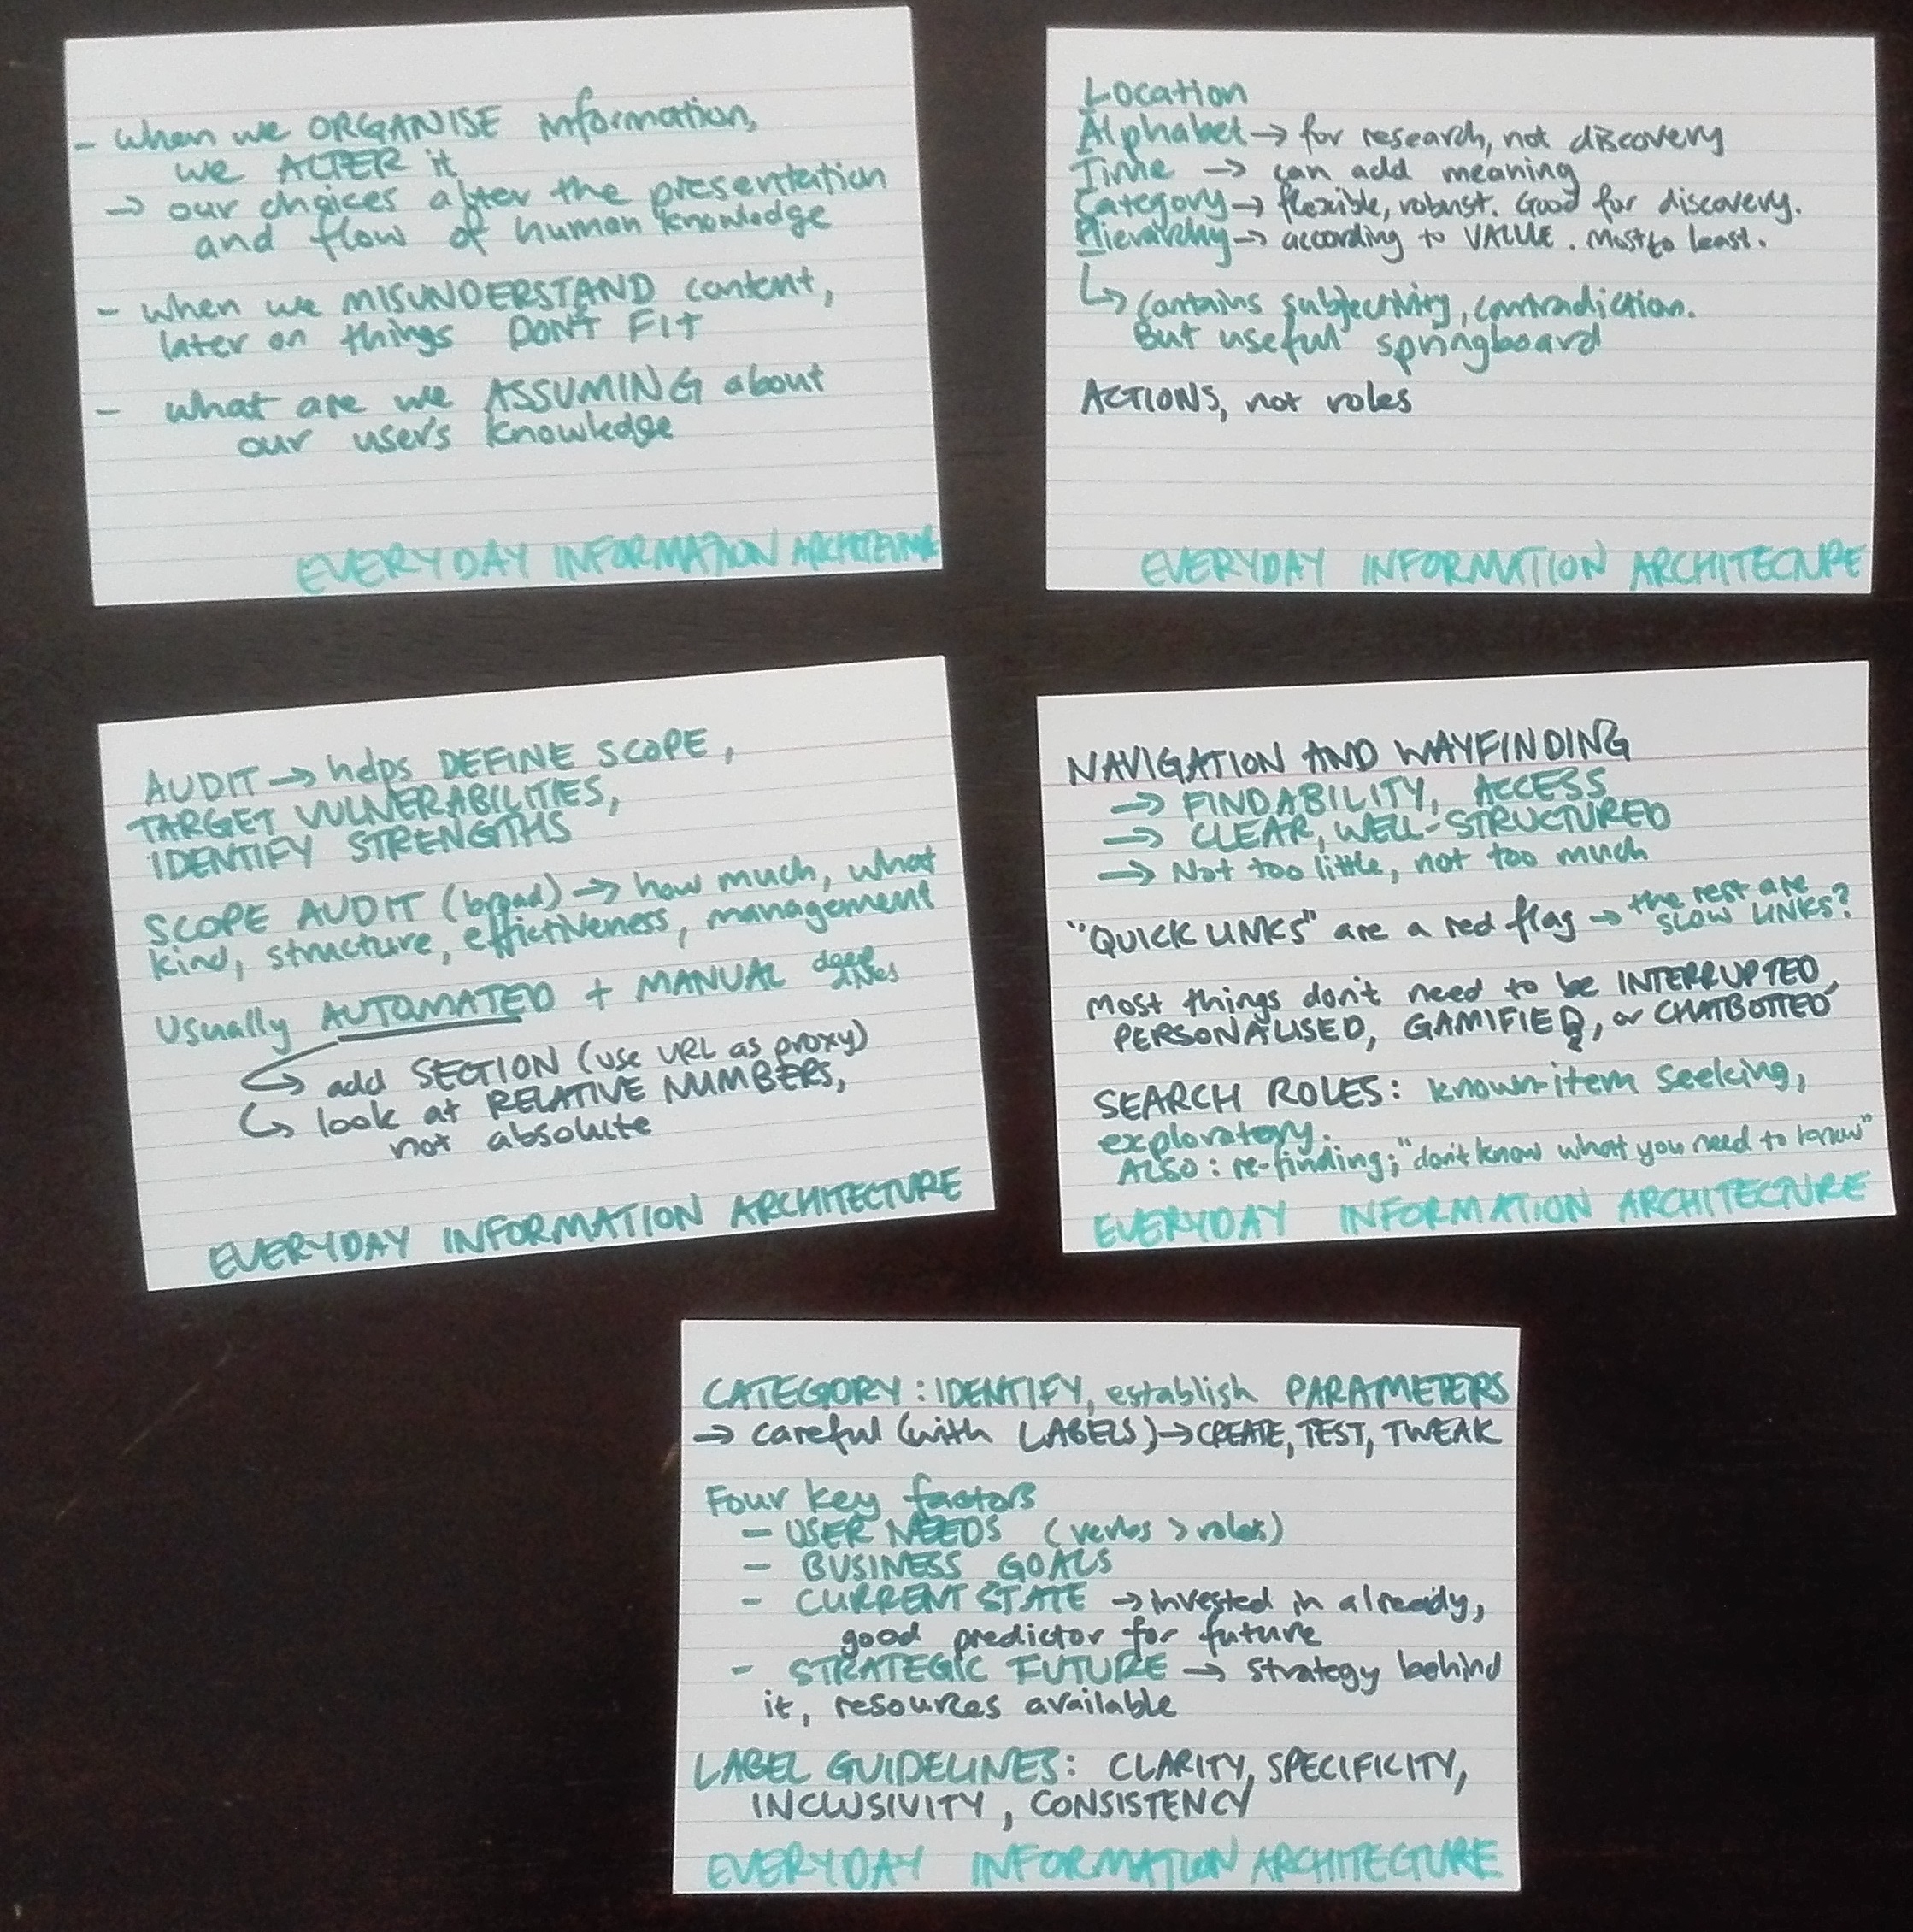 - when we ORGANISE information,
we ALTER it
→ our choices alter the presentation
and flow of human knowledge
- when we MISUNDERSTAND content,
later on things DON'T FIT
- what are we ASSUMING about
our users knowledge
EVERYDAY INFORMATION ARCHITECTURE
Location
Alphabet → for research, not discovery
Time → can add meaning
Category → flexible, robust. Good for discovery.
Hierarchy → according to VALUE. Most to least.
↳ contains subjectivity, contradiction.
But useful springboard
ACTIONS, not roles
EVERYDAY INFORMATION ARCHITECTURE
AUDIT → helps DEFINE SCOPE,
TARGET VULNERABILITIES,
IDENTIFY STRENGTHS
SCOPE AUDIT (broad) → how much, what
kind, structure, effictiveness, management
Usually AUTOMATED + MANUAL deep dives
↳ add SECTION (use URL as proxy)
↳ look at RELATIVE NUMBERS,
not absolute
EVERYDAY INFORMATION ARCHITECTURE
NAVIGATION AND WAYFINDING
→ FINDABILITY, ACCESS
→ CLEAR, WELL-STRUCTURED
→ Not too little, not too much
"QUICK LINKS" are a red flag → the rest are
SLOW LINKS?
Most things don't need to be INTERRUPTED,
PERSONALISED, GAMIFIED, or CHATBOTTED
SEARCH ROLES: known-item seeking,
exploratory.
ALSO: re-finding; "don't know what you need to know"
EVERYDAY INFORMATION ARCHITECTURE
CATEGORY: IDENTIFY, establish PARAMETERS
→ careful (with LABELS) → CREATE, TEST, TWEAK
Four key factors
- USER NEEDS (verbs > roles)
- BUSINESS GOALS
- CURRENT STATE → invested in already,
good predictor for future
- STRATEGIC FUTURE → strategy behind
it, resources available
LABEL GUIDELINES: CLARITY, SPECIFICITY,
INCLUSIVITY, CONSISTENCY
EVERYDAY INFORMATION ARCHITECTURE